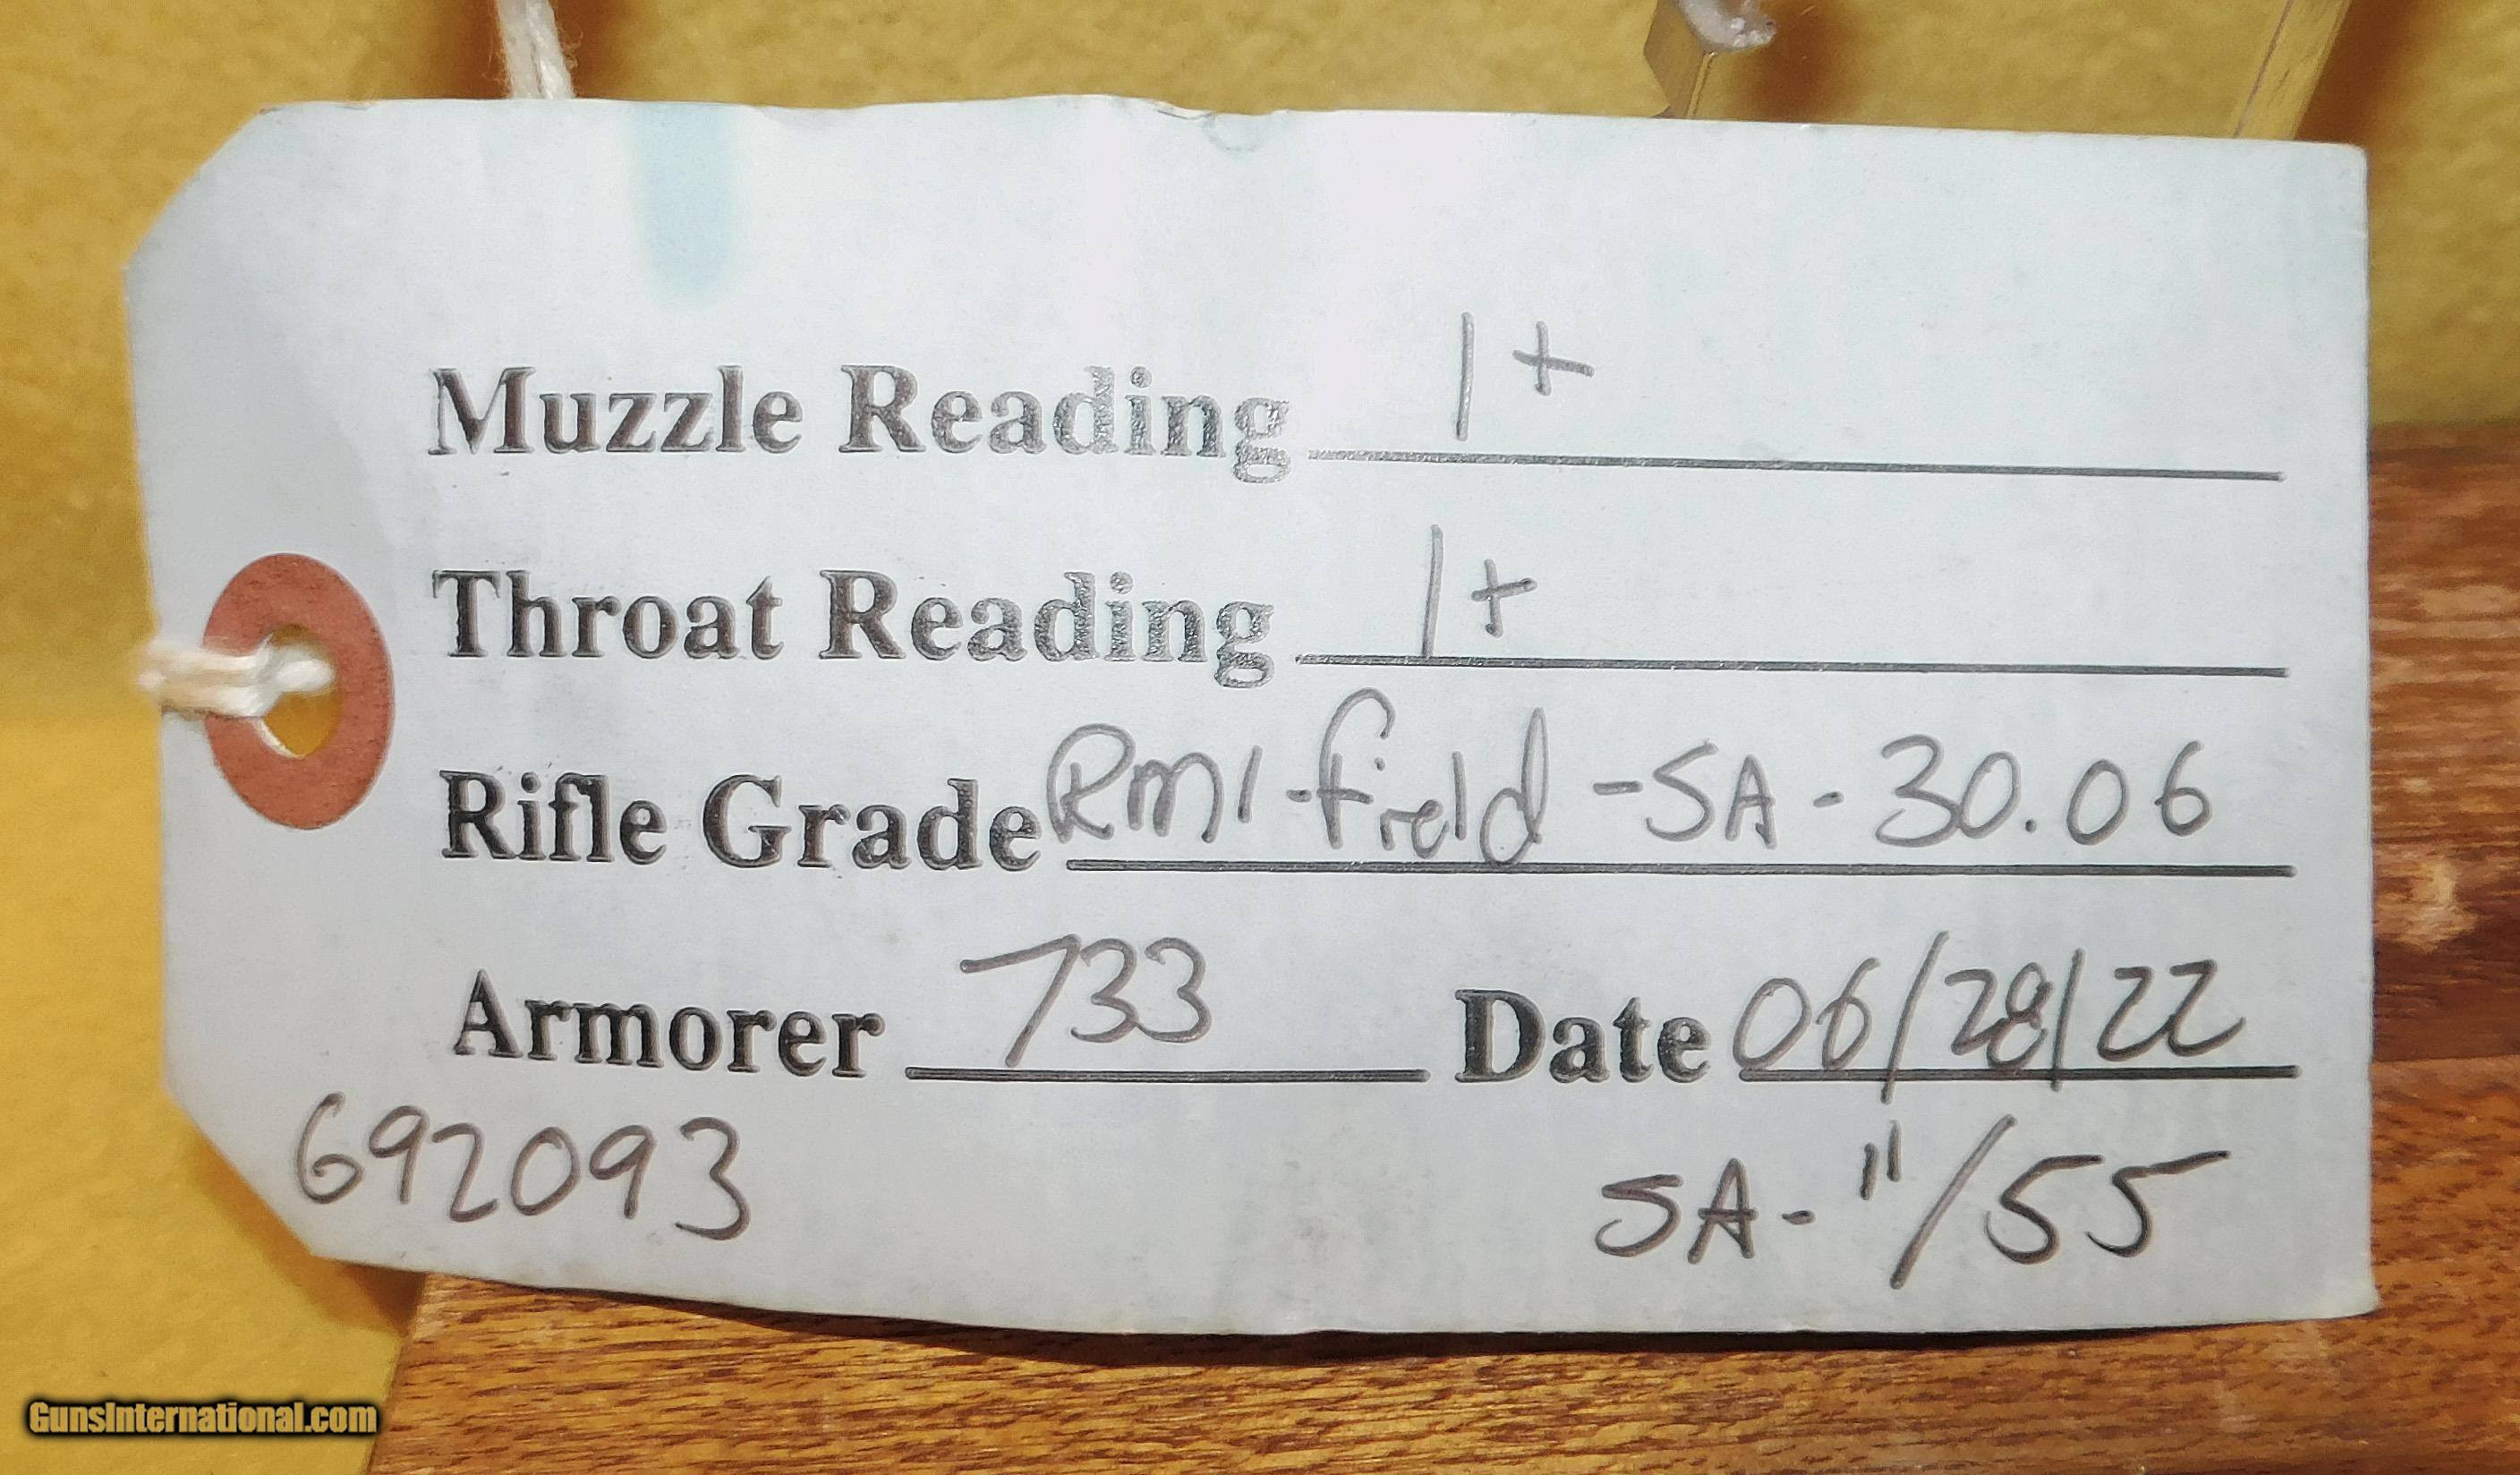 Muzzle Reading 1+
Throat Reading 1+
Rifle Grade RM1-Field-SA-30.06
Armorer 733 Date 06/28/22
692093 SA-11/55
GunsInternational.com